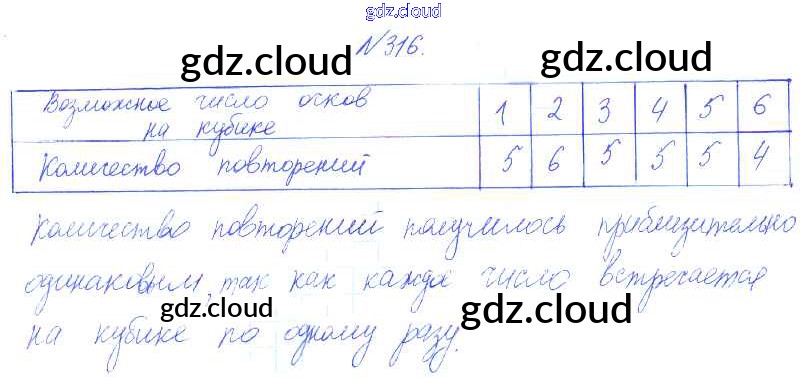 gdz.cloud
№316.
gdz.cloud gdz.cloud
Возможное число очков на кубике 1 2 3 4 5 6
Количество повторений 5 6 5 5 5 4
Количество повторений получилось приблизительно
одинаковым, так как каждое число встречается
gdz.cloud gdz.cloud
на кубике по одному разу.